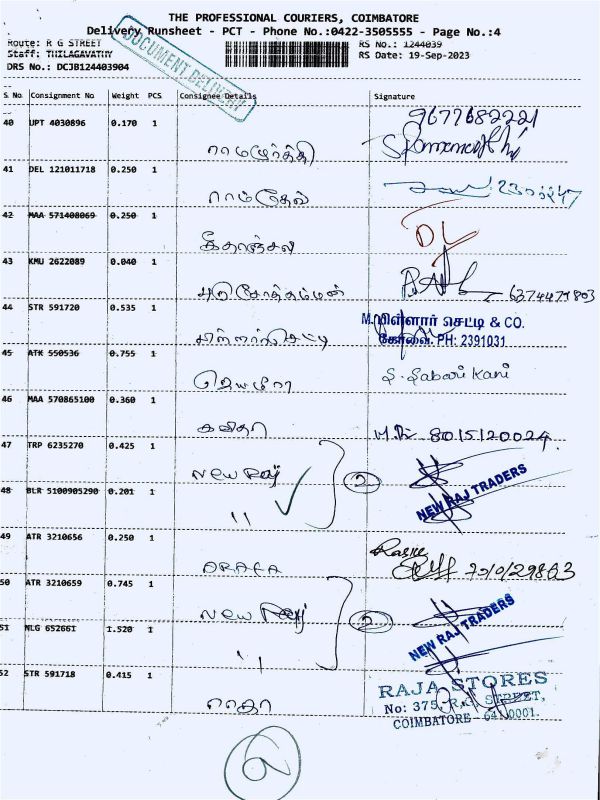 THE PROFESSIONAL COURIERS, COIMBATORE
Delivery Runsheet - PCT - Phone No.:0422-3505555 - Page No.:4
Route: R G STREET RS No.: 1244039
Staff: THILAGAVATHY RS Date: 19-Sep-2023
DRS No.: DCJB124403904
DOCUMENT DELIVERY
S.No. Consignment No Weight PCS Consignee Details Signature
40 UPT 4030896 0.170 1 9677682221
ராமமூர்த்தி
41 DEL 121011718 0.250 1
ராம்தேவ்
42 MAA 571408069 0.250 1 DL
கீதாஞ்சலி
43 KMU 2622089 0.040 1
புரிசோத்தம்மன்
44 STR 591720 0.535 1 M.பிள்ளார் செட்டி & CO.
கோவை. PH: 2391031
45 ATK 550536 0.755 1 S. Sabari Kani
ஜெயமீரா
46 MAA 570865100 0.360 1
கவிதா 8015120024
47 TRP 6235270 0.425 1
New Raj 2 NEW RAJ TRADERS
48 BLR 5100905290 0.201 1
"
49 ATR 3210656 0.250 1
ARAFA
50 ATR 3210659 0.745 1
New Raj 2 NEW RAJ TRADERS
51 NLG 652661 1.520 1
"
52 STR 591718 0.415 1 RAJA STORES
ராதா No: 375, R.G. STREET,
COIMBATORE - 641 0001.